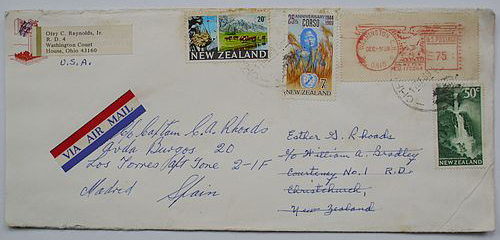 Otey C. Reynolds, Jr.
R. D. 4
Washington Court
House, Ohio 43160
U.S.A.
20c
NEW ZEALAND
25th ANNIVERSARY 1944 1969
CORSO
7c
NEW ZEALAND
OHIO
75
50c
NEW ZEALAND
VIA AIR MAIL
c/o Captain C. A. Rhoads
Avda Burgos 20
Los Torres/apt Tone 2-1F
Madrid Spain
Esther G. Rhoads
c/o William A. Bradley
Courteney No. 1 R.D.
Christchurch,
New Zealand